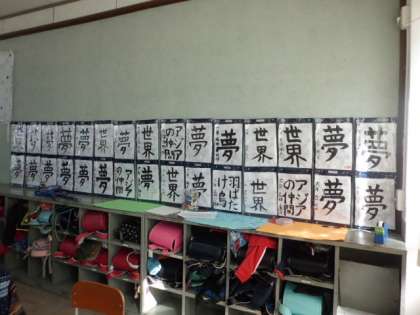 夢
夢
夢
夢
夢
世界
夢
世界
アジア
の仲間
夢
夢
世界
世界
夢
夢
夢
夢
夢
夢
夢
夢
アジア
の仲間
夢
世界
夢
羽ばた
け鳥
世界
アジア
の仲間
夢
夢